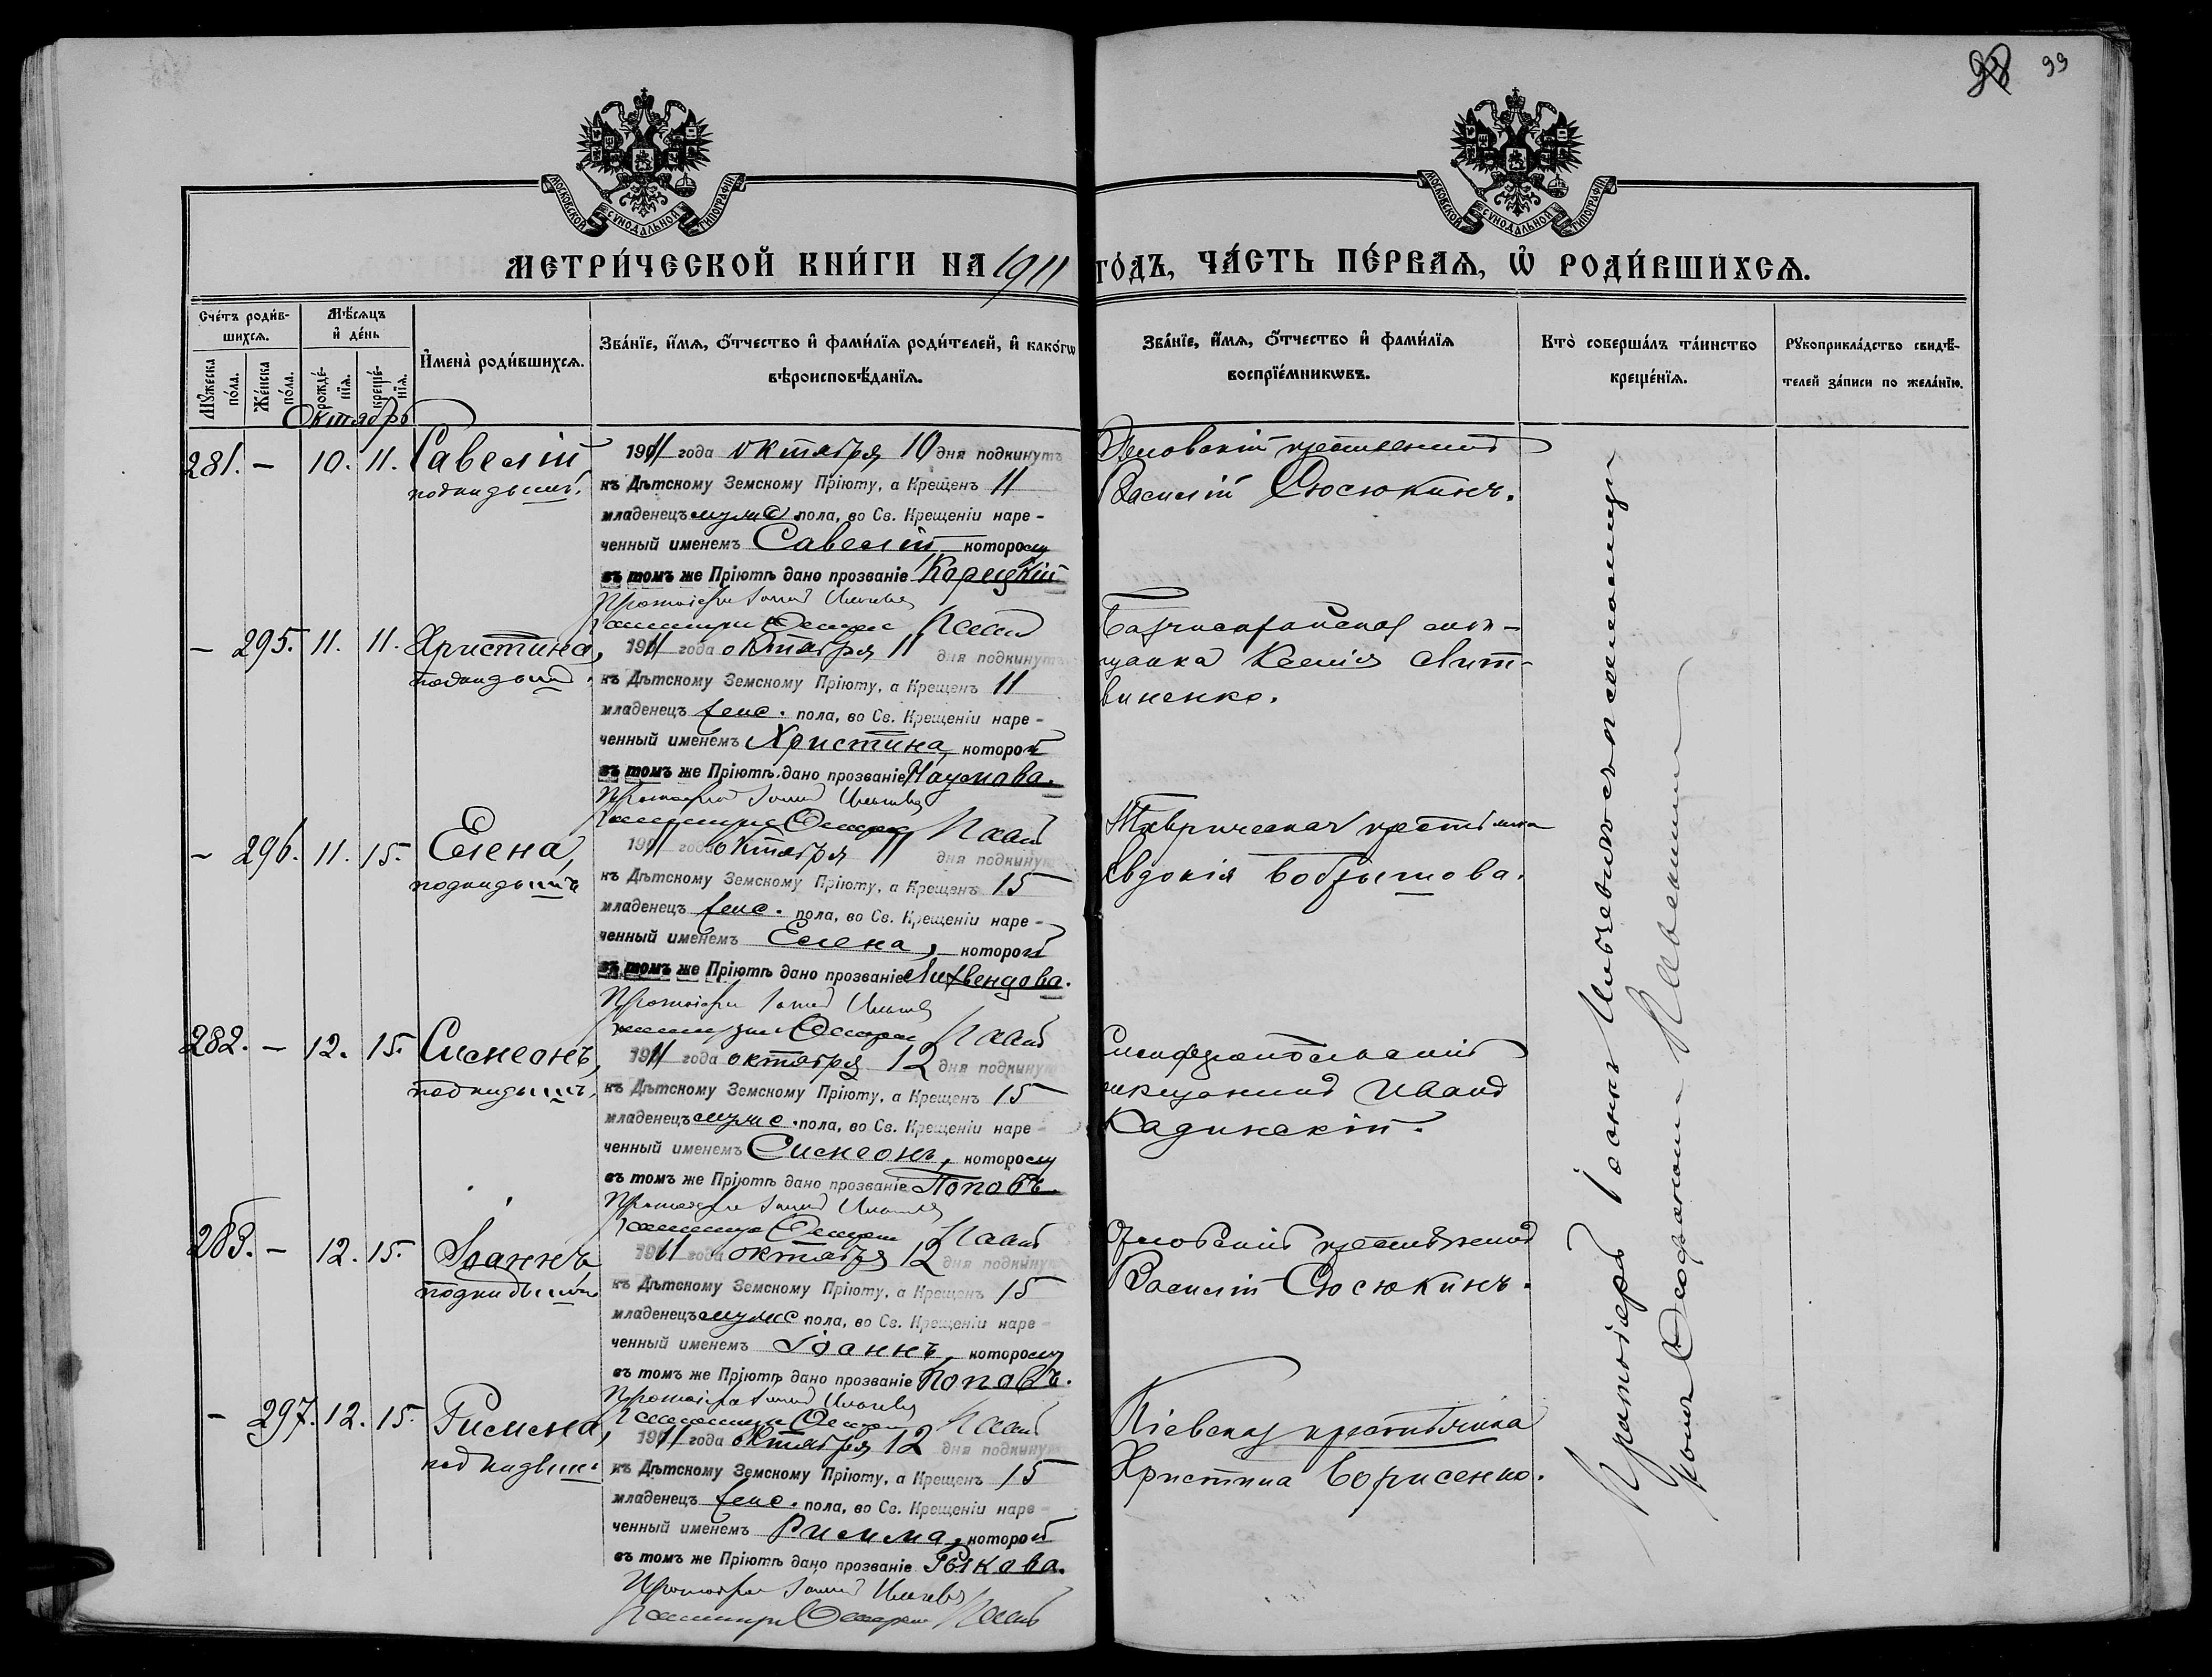 98 99
МОСКОВСКОЙ СУНОДАЛЬНОЙ ТИПОГРАФІИ
МОСКОВСКОЙ СУНОДАЛЬНОЙ ТИПОГРАФІИ
МЕТРИ́ЧЕСКОЙ КНИ́ГИ НА 1911 ГО́ДЪ, ЧА́СТЬ ПЕ́РВАЯ, Ѡ҆ РОДИ́ВШИХСЯ.
Сче́тъ роди́вшихся.
Мѣ́сяцъ и҆ де́нь
Му́жеска по́ла.
Же́нска по́ла.
рожде́нїя.
креще́нїя.
И҆мена̀ роди́вшихся.
Зва́нїе, и҆́мя, ѻ҆́тчество и҆ фами́лїя роди́телей, и҆ како́гѡ вѣроисповѣ́данїя.
Зва́нїе, и҆́мя, ѻ҆́тчество и҆ фами́лїя воспрїе́мникѡвъ.
Кто̀ соверша́лъ та́инство креще́нїя.
Рꙋкоприкла́дство свидѣ́телей за́писи по жела́нїю.
Октябрь
281. – 10. 11. Савелій
подкидышъ.
1911 года октября 10 дня подкинутъ
къ Дѣтскому Земскому Пріюту, а Крещенъ 11
младенецъ муж. пола, во Св. Крещеніи наре-
ченный именемъ Савелій которому
въ томъ же Пріютѣ дано прозваніе Корецкій
Протоіерей Іоаннъ
Орловскій крестьянинъ
Василій Сюсюкинъ.
– 295. 11. 11. Христина,
подкидышъ.
1911 года октября 11 дня подкинутъ
къ Дѣтскому Земскому Пріюту, а Крещенъ 11
младенецъ женс. пола, во Св. Крещеніи наре-
ченный именемъ Христина которой
въ томъ же Пріютѣ дано прозваніе Наумова.
Протоіерей Іоаннъ
Бахчисарайская мѣ-
щанка Ксенія Лит-
виненко.
– 296. 11. 15. Елена,
подкидышъ
1911 года октября 11 дня подкинутъ
къ Дѣтскому Земскому Пріюту, а Крещенъ 15
младенецъ женс. пола, во Св. Крещеніи наре-
ченный именемъ Елена, которой
въ томъ же Пріютѣ дано прозваніе
Протоіерей Іоаннъ
Таврическая крестьянка
Евдокія
282. – 12. 15. Симеонъ,
подкидышъ.
1911 года октября 12 дня подкинутъ
къ Дѣтскому Земскому Пріюту, а Крещенъ 15
младенецъ муж. пола, во Св. Крещеніи наре-
ченный именемъ Симеонъ, которому
въ томъ же Пріютѣ дано прозваніе Поповъ.
Протоіерей Іоаннъ
Симферопольскій
мѣщанинъ Иванъ
Кадинскій.
283. – 12. 15. Іоаннъ
подкидышъ
1911 года октября 12 дня подкинутъ
къ Дѣтскому Земскому Пріюту, а Крещенъ 15
младенецъ муж. пола, во Св. Крещеніи наре-
ченный именемъ Іоаннъ, которому
въ томъ же Пріютѣ дано прозваніе Поповъ.
Протоіерей Іоаннъ
Орловскій крестьянинъ
Василій Сюсюкинъ.
– 297. 12. 15. Римма,
подкидышъ
1911 года октября 12 дня подкинутъ
къ Дѣтскому Земскому Пріюту, а Крещенъ 15
младенецъ женс. пола, во Св. Крещеніи наре-
ченный именемъ Римма, которой
въ томъ же Пріютѣ дано прозваніе Рыкова.
Протоіерей Іоаннъ
Кіевская крестьянка
Христина Борисенко.
Протоіерей Іоаннъ съ псаломщи
комъ